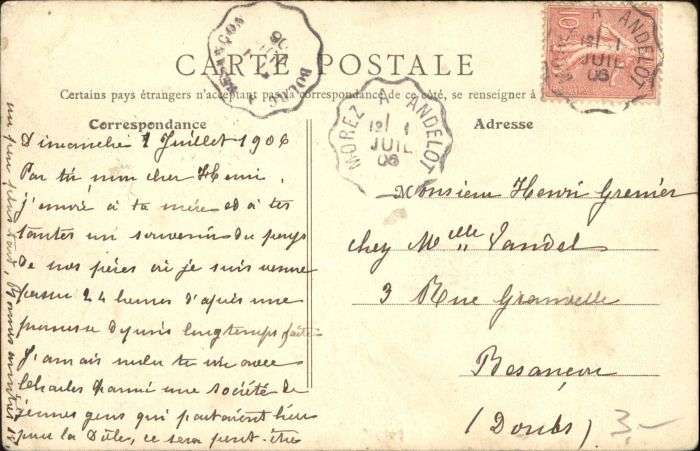 CARTE POSTALE
Certains pays étrangers n'acceptant pas la correspondance de ce côté, se renseigner à
Correspondance
Dimanche 1 Juillet 1906
Par toi, mon cher Henri,
j'envoie à ta mère et à tes
tantes un souvenir du pays
de nos pères où je suis venue
passer 24 heures d'après une
promesse depuis longtemps faite.
J'aurais voulu te voir avec
Charles parmi une société de
jeunes gens qui partaient hier
pour la Dôle, ce sera peut-être
un peu plus tard,
Adresse
Monsieur Henri Grenier
chez Melle Vandel
3 Rue Granvelle
Besançon
(Doubs)
3,-
MOREZ A ANDELOT
12 1
JUIL
06
MOREZ A ANDELOT
12 1
JUIL
06
10